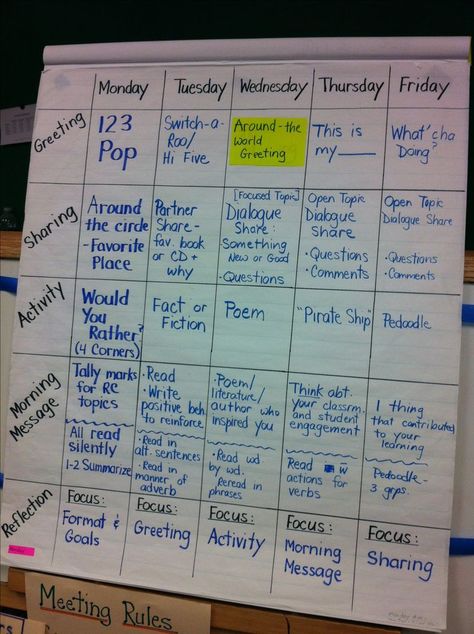 Monday Tuesday Wednesday Thursday Friday
Greeting
123
Pop
Switch-a-
Roo/
Hi Five
Around-the
world
Greeting
This is
my____
What'cha
Doing?
Sharing
Around
the circle
-Favorite
Place
Partner
Share-
fav. book
or CD +
why
[Focused Topic]
Dialogue
Share:
Something
New or Good
·Questions
Open Topic
Dialogue
Share
·Questions
·Comments
Open Topic
Dialogue Share
·Questions
·Comments
Activity
Would
You
Rather?
(4 Corners)
Fact or
Fiction
Poem
"Pirate Ship"
Pedoodle
Morning
Message
Tally marks
for RC
topics
All read
silently
1-2 Summarize
·Read
·Write
positive beh.
to reinforce
·Read in
alt. sentences
·Read in
manner of
adverb
·Poem/
literature/
author who
inspired you
·Read wd.
by wd.
Reread in
phrases
Think abt.
your classrm.
and student
engagement
Read w
actions for
verbs
1 thing
that contributed
to your
learning
Pedoodle-
3 grps.
Reflection
Focus:
Format &
Goals
Focus:
Greeting
Focus:
Activity
Focus:
Morning
Message
Focus:
Sharing
Meeting Rules